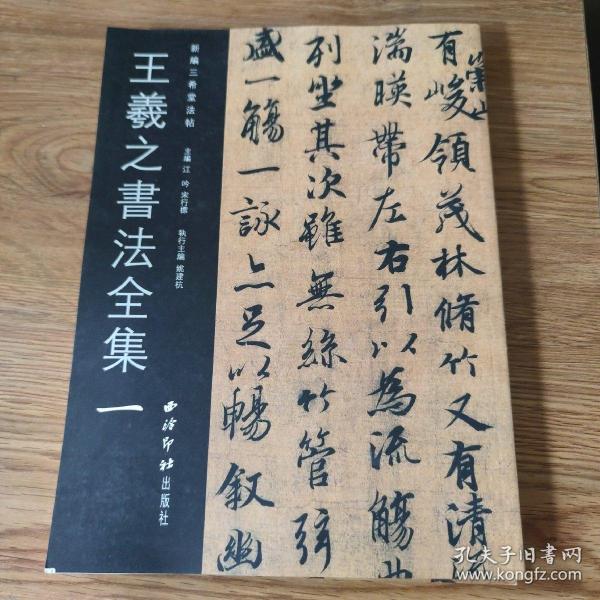 新編三希堂法帖
王羲之書法全集 一
主編 江吟 宋行標
執行主編 姚建杭
西泠印社出版社
崇山
有峻領茂林脩竹又有清
湍暎帶左右引以為流觴曲
列坐其次雖無絲竹管弦
盛一觴一詠亦足以暢叙幽
孔夫子旧書网
www.kongfz.com